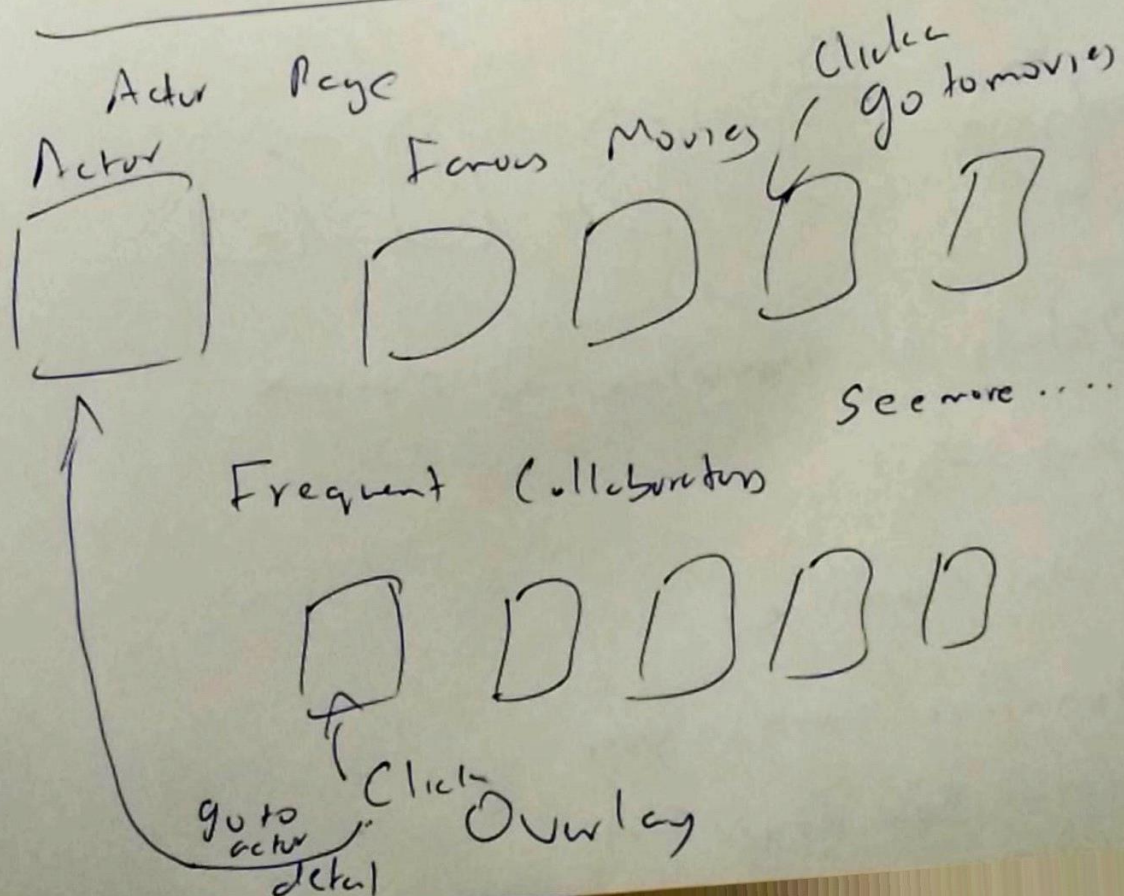 Actor Page
Click
go to movies
Actor
Famous Movies
See more ....
Frequent Collaborators
Click
Overlay
go to
actor
detail